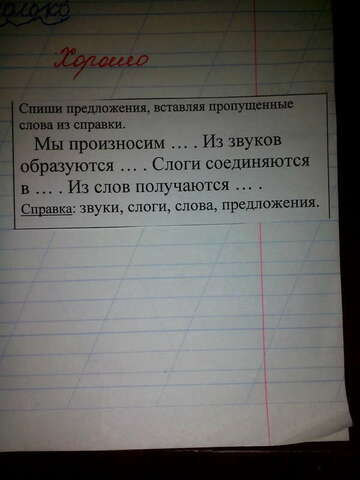 Хорошо
Спиши предложения, вставляя пропущенные
слова из справки.
Мы произносим ... . Из звуков
образуются ... . Слоги соединяются
в ... . Из слов получаются ... .
Справка: звуки, слоги, слова, предложения.